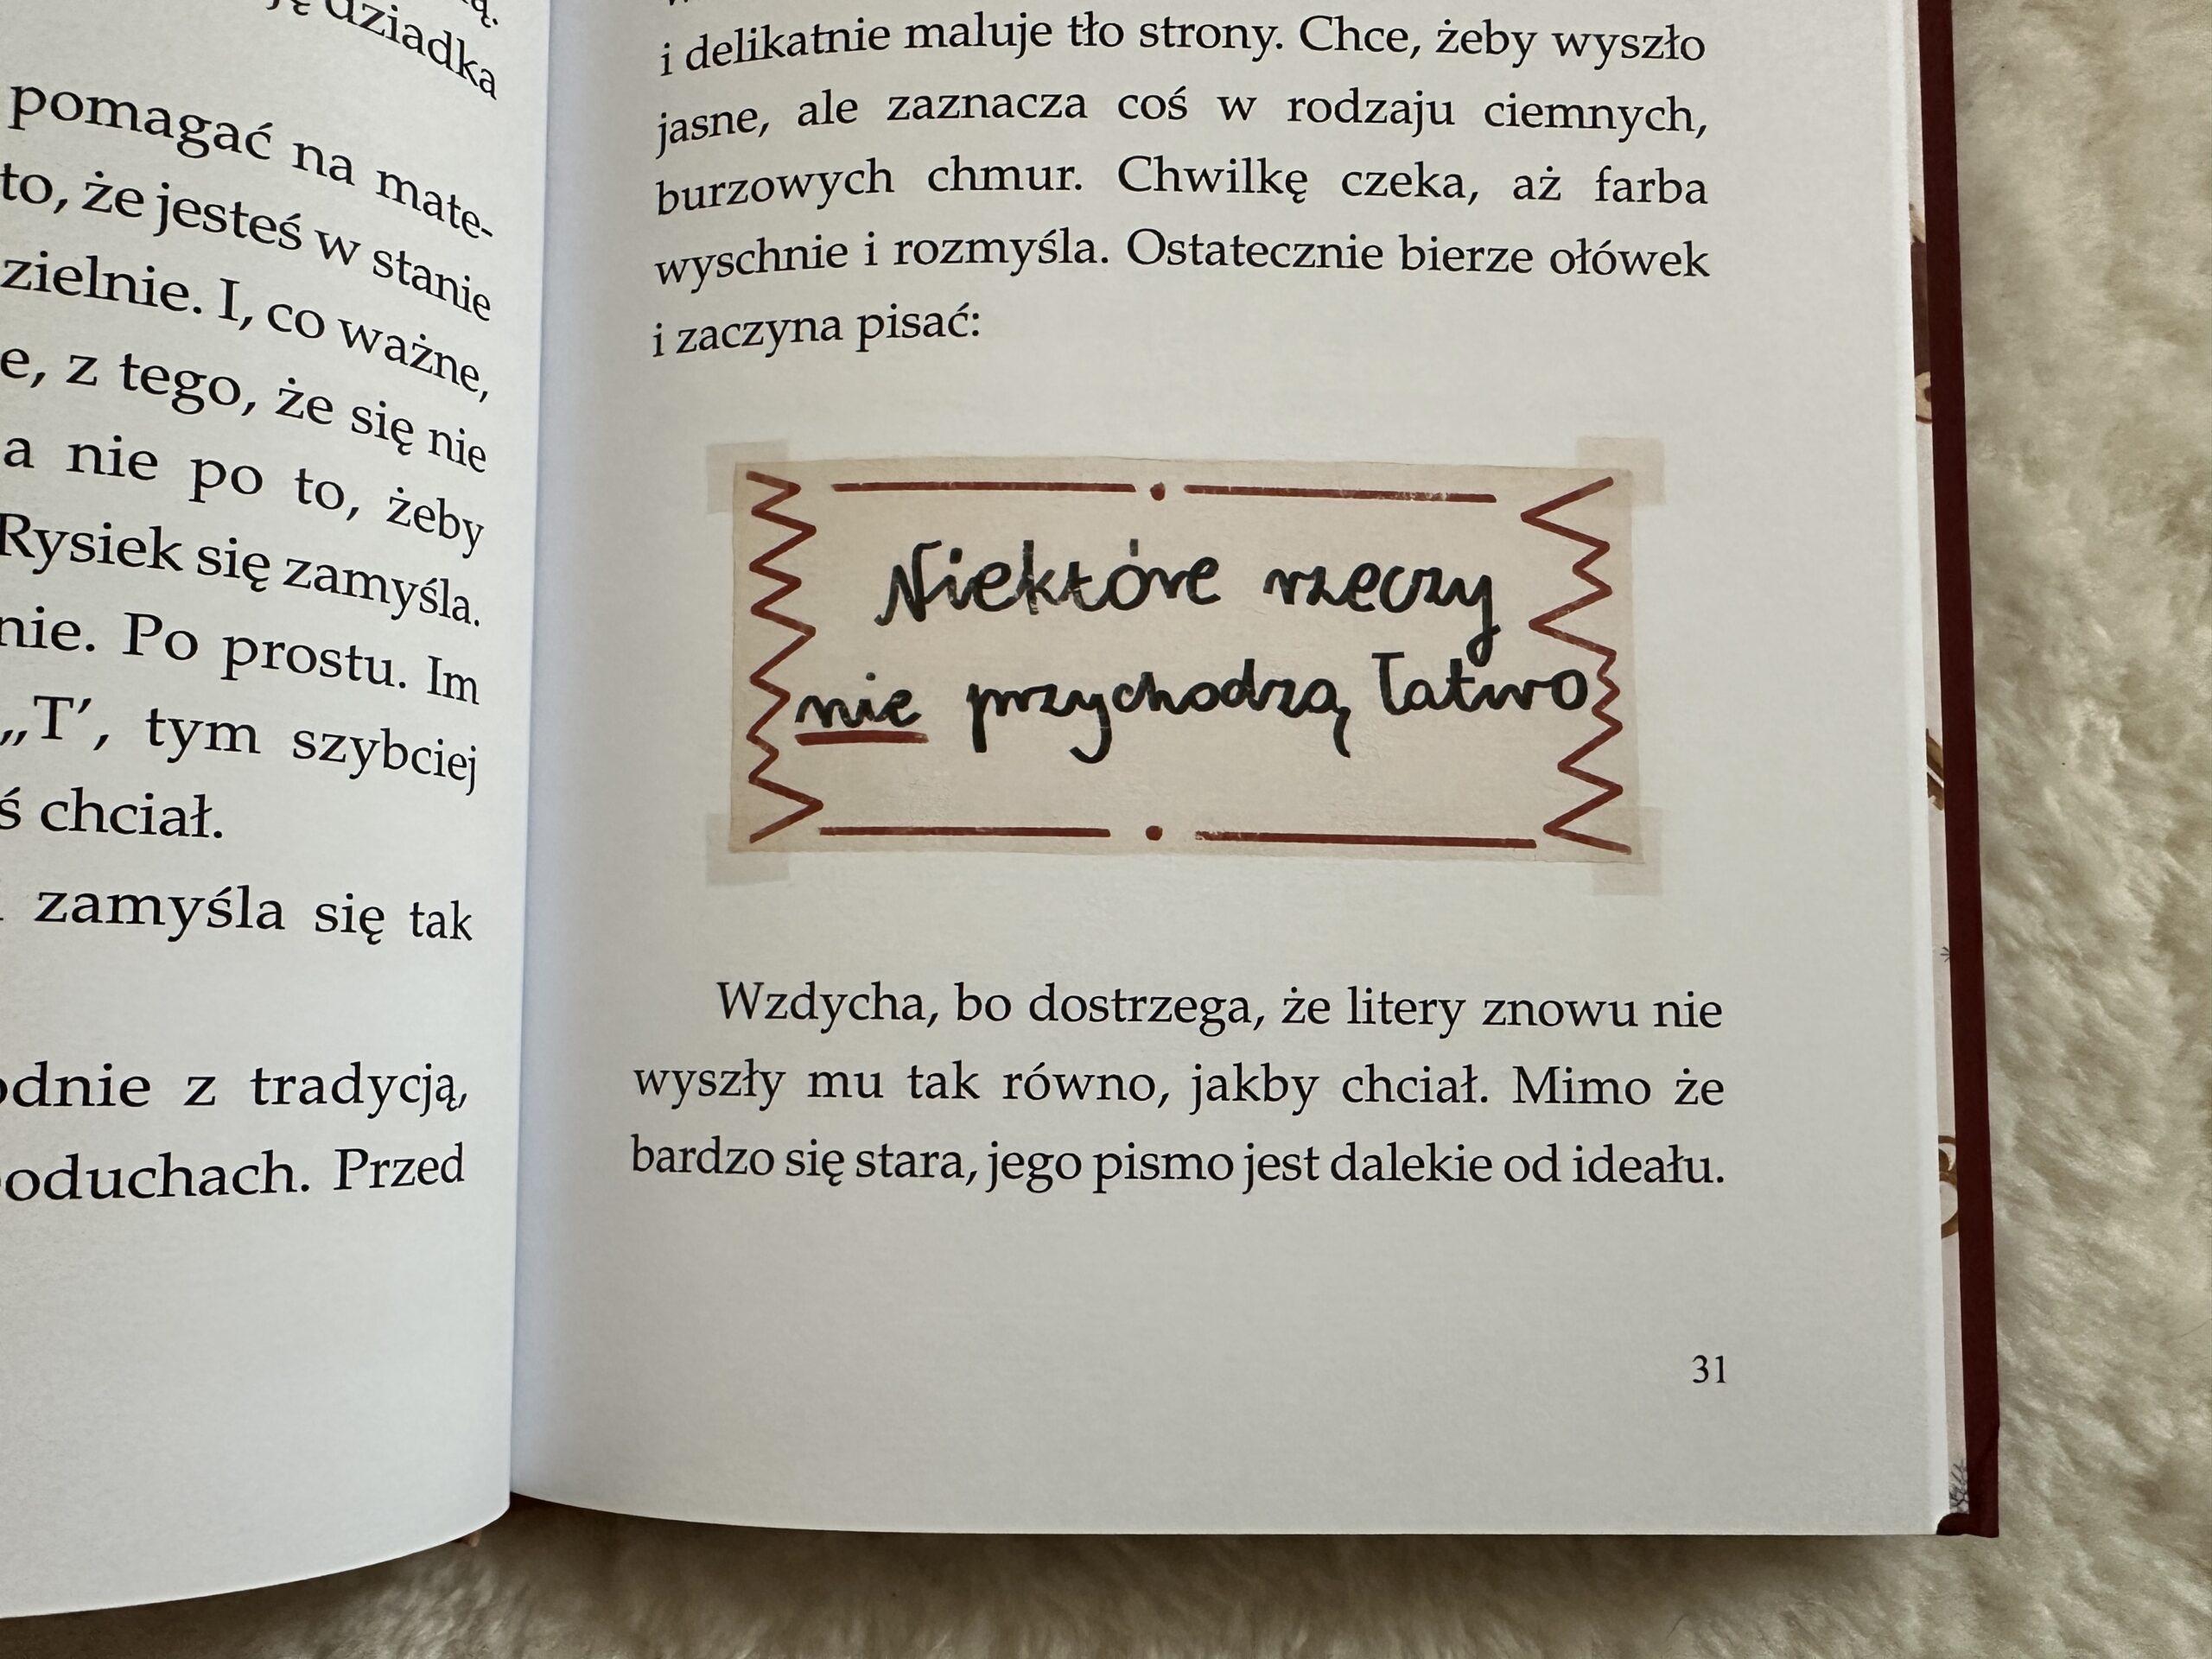 dziadka
pomagać na mate-
to, że jesteś w stanie
zielnie. I, co ważne,
e, z tego, że się nie
a nie po to, żeby
Rysiek się zamyśla.
nie. Po prostu. Im
„T’, tym szybciej
ś chciał.
zamyśla się tak
odnie z tradycją,
oduchach. Przed
i delikatnie maluje tło strony. Chce, żeby wyszło
jasne, ale zaznacza coś w rodzaju ciemnych,
burzowych chmur. Chwilkę czeka, aż farba
wyschnie i rozmyśla. Ostatecznie bierze ołówek
i zaczyna pisać:
Niektóre rzeczy
nie przychodzą łatwo
Wzdycha, bo dostrzega, że litery znowu nie
wyszły mu tak równo, jakby chciał. Mimo że
bardzo się stara, jego pismo jest dalekie od ideału.
31